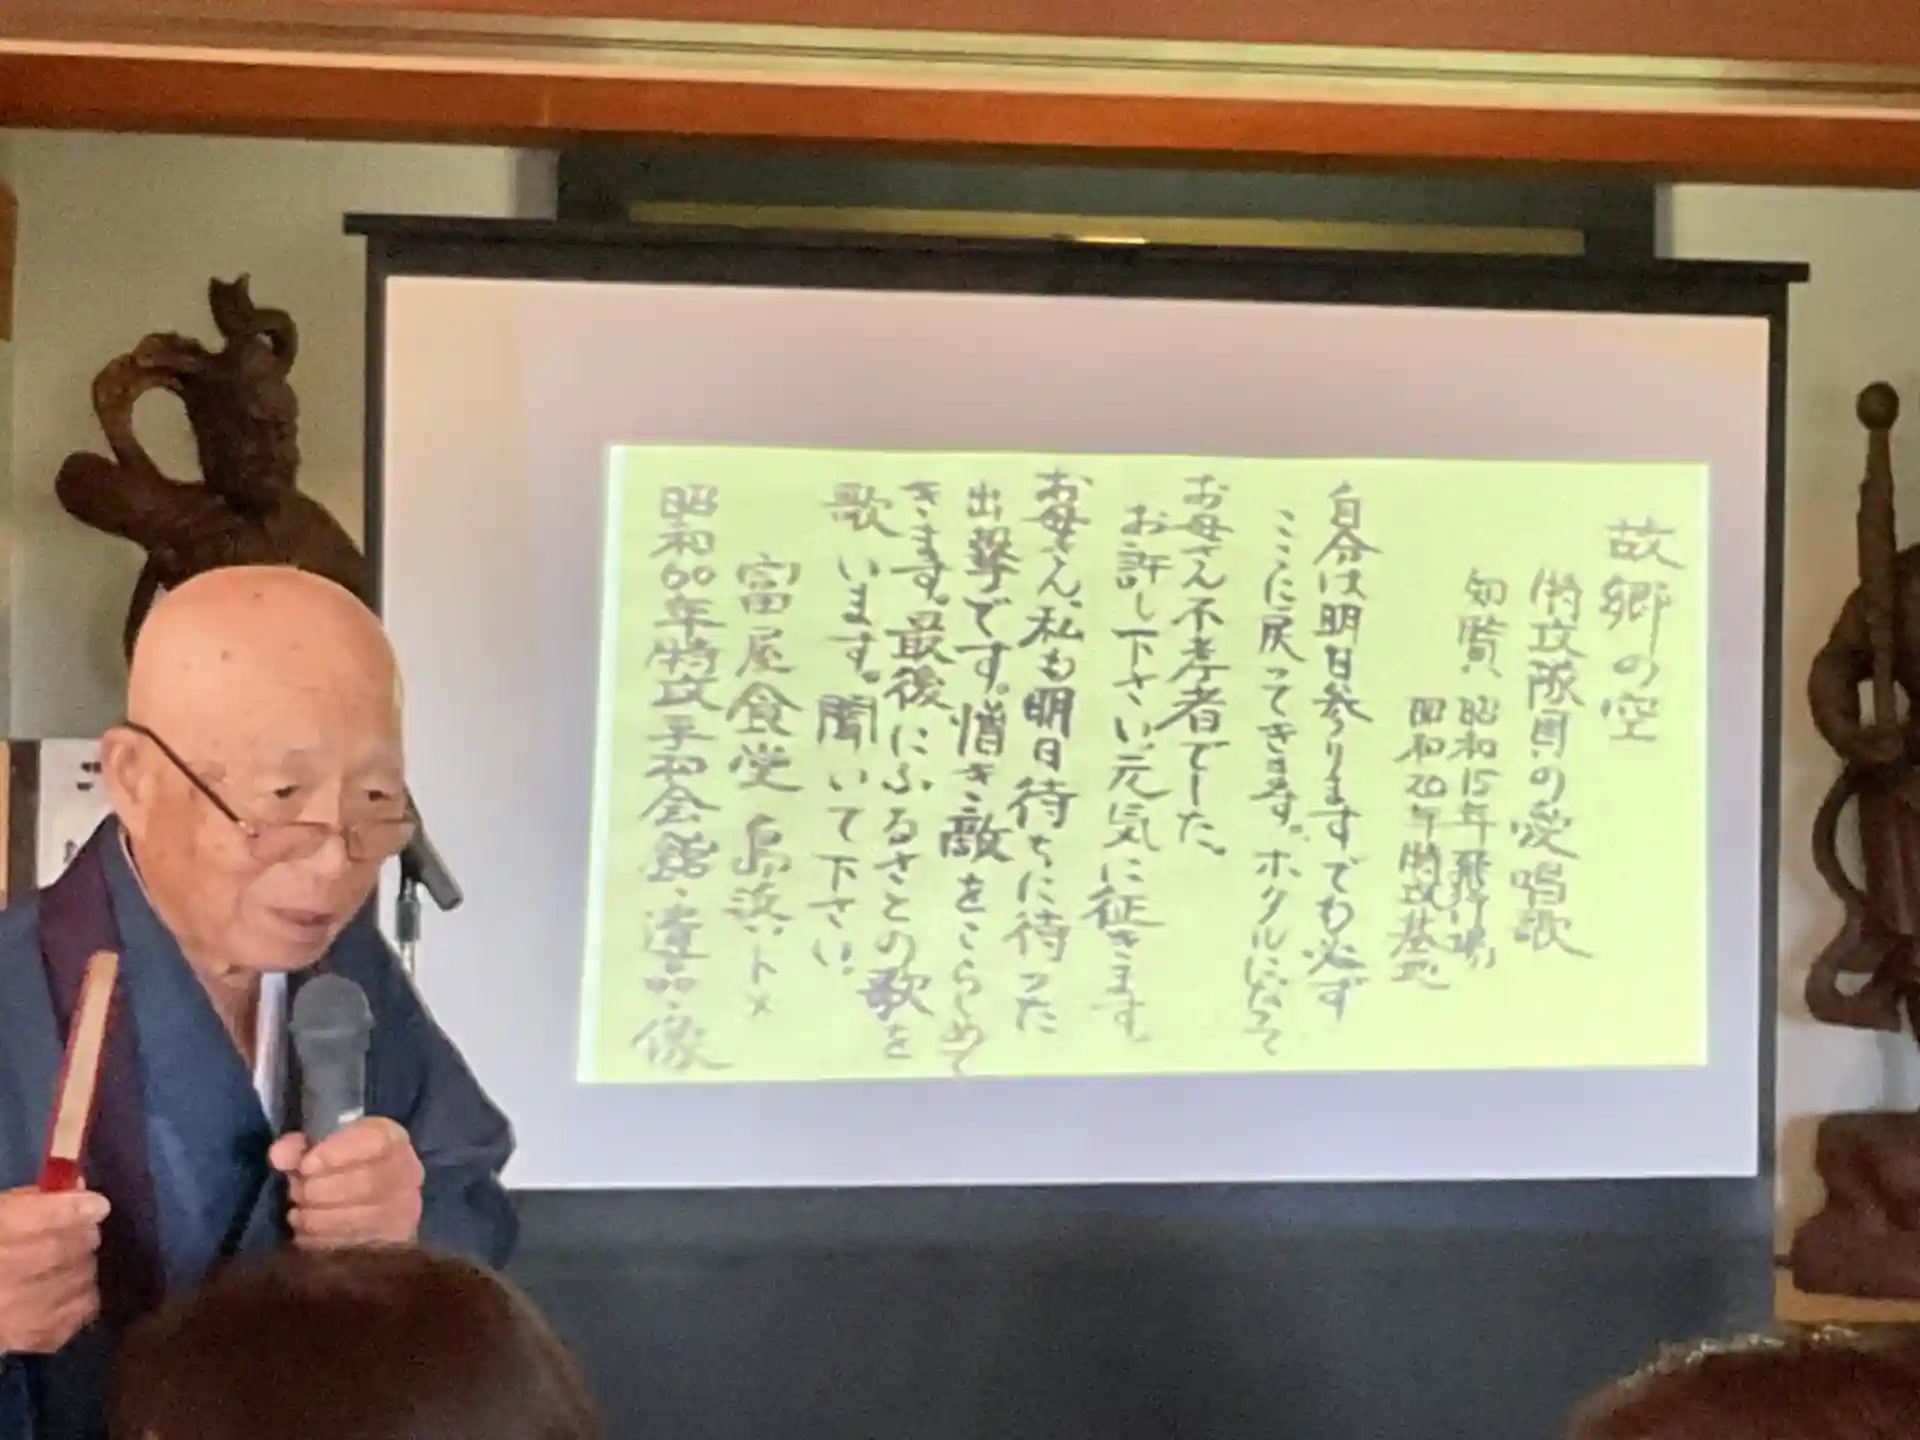 故郷の空
特攻隊員の愛唱歌
知覧 昭和15年飛行場
昭和20年特攻基地
自分は明日参りますでも必ず
ここに戻ってきます。ホタルになって
お母さん不孝者でした。
お許し下さい元気に征きます。
お母さん私も明日待ちに待った
出撃です。憎き敵をこらしめて
きます。最後にふるさとの歌を
歌います。聞いて下さい。
富屋食堂 鳥浜トメ
昭和60年特攻平和会館・遺品・像